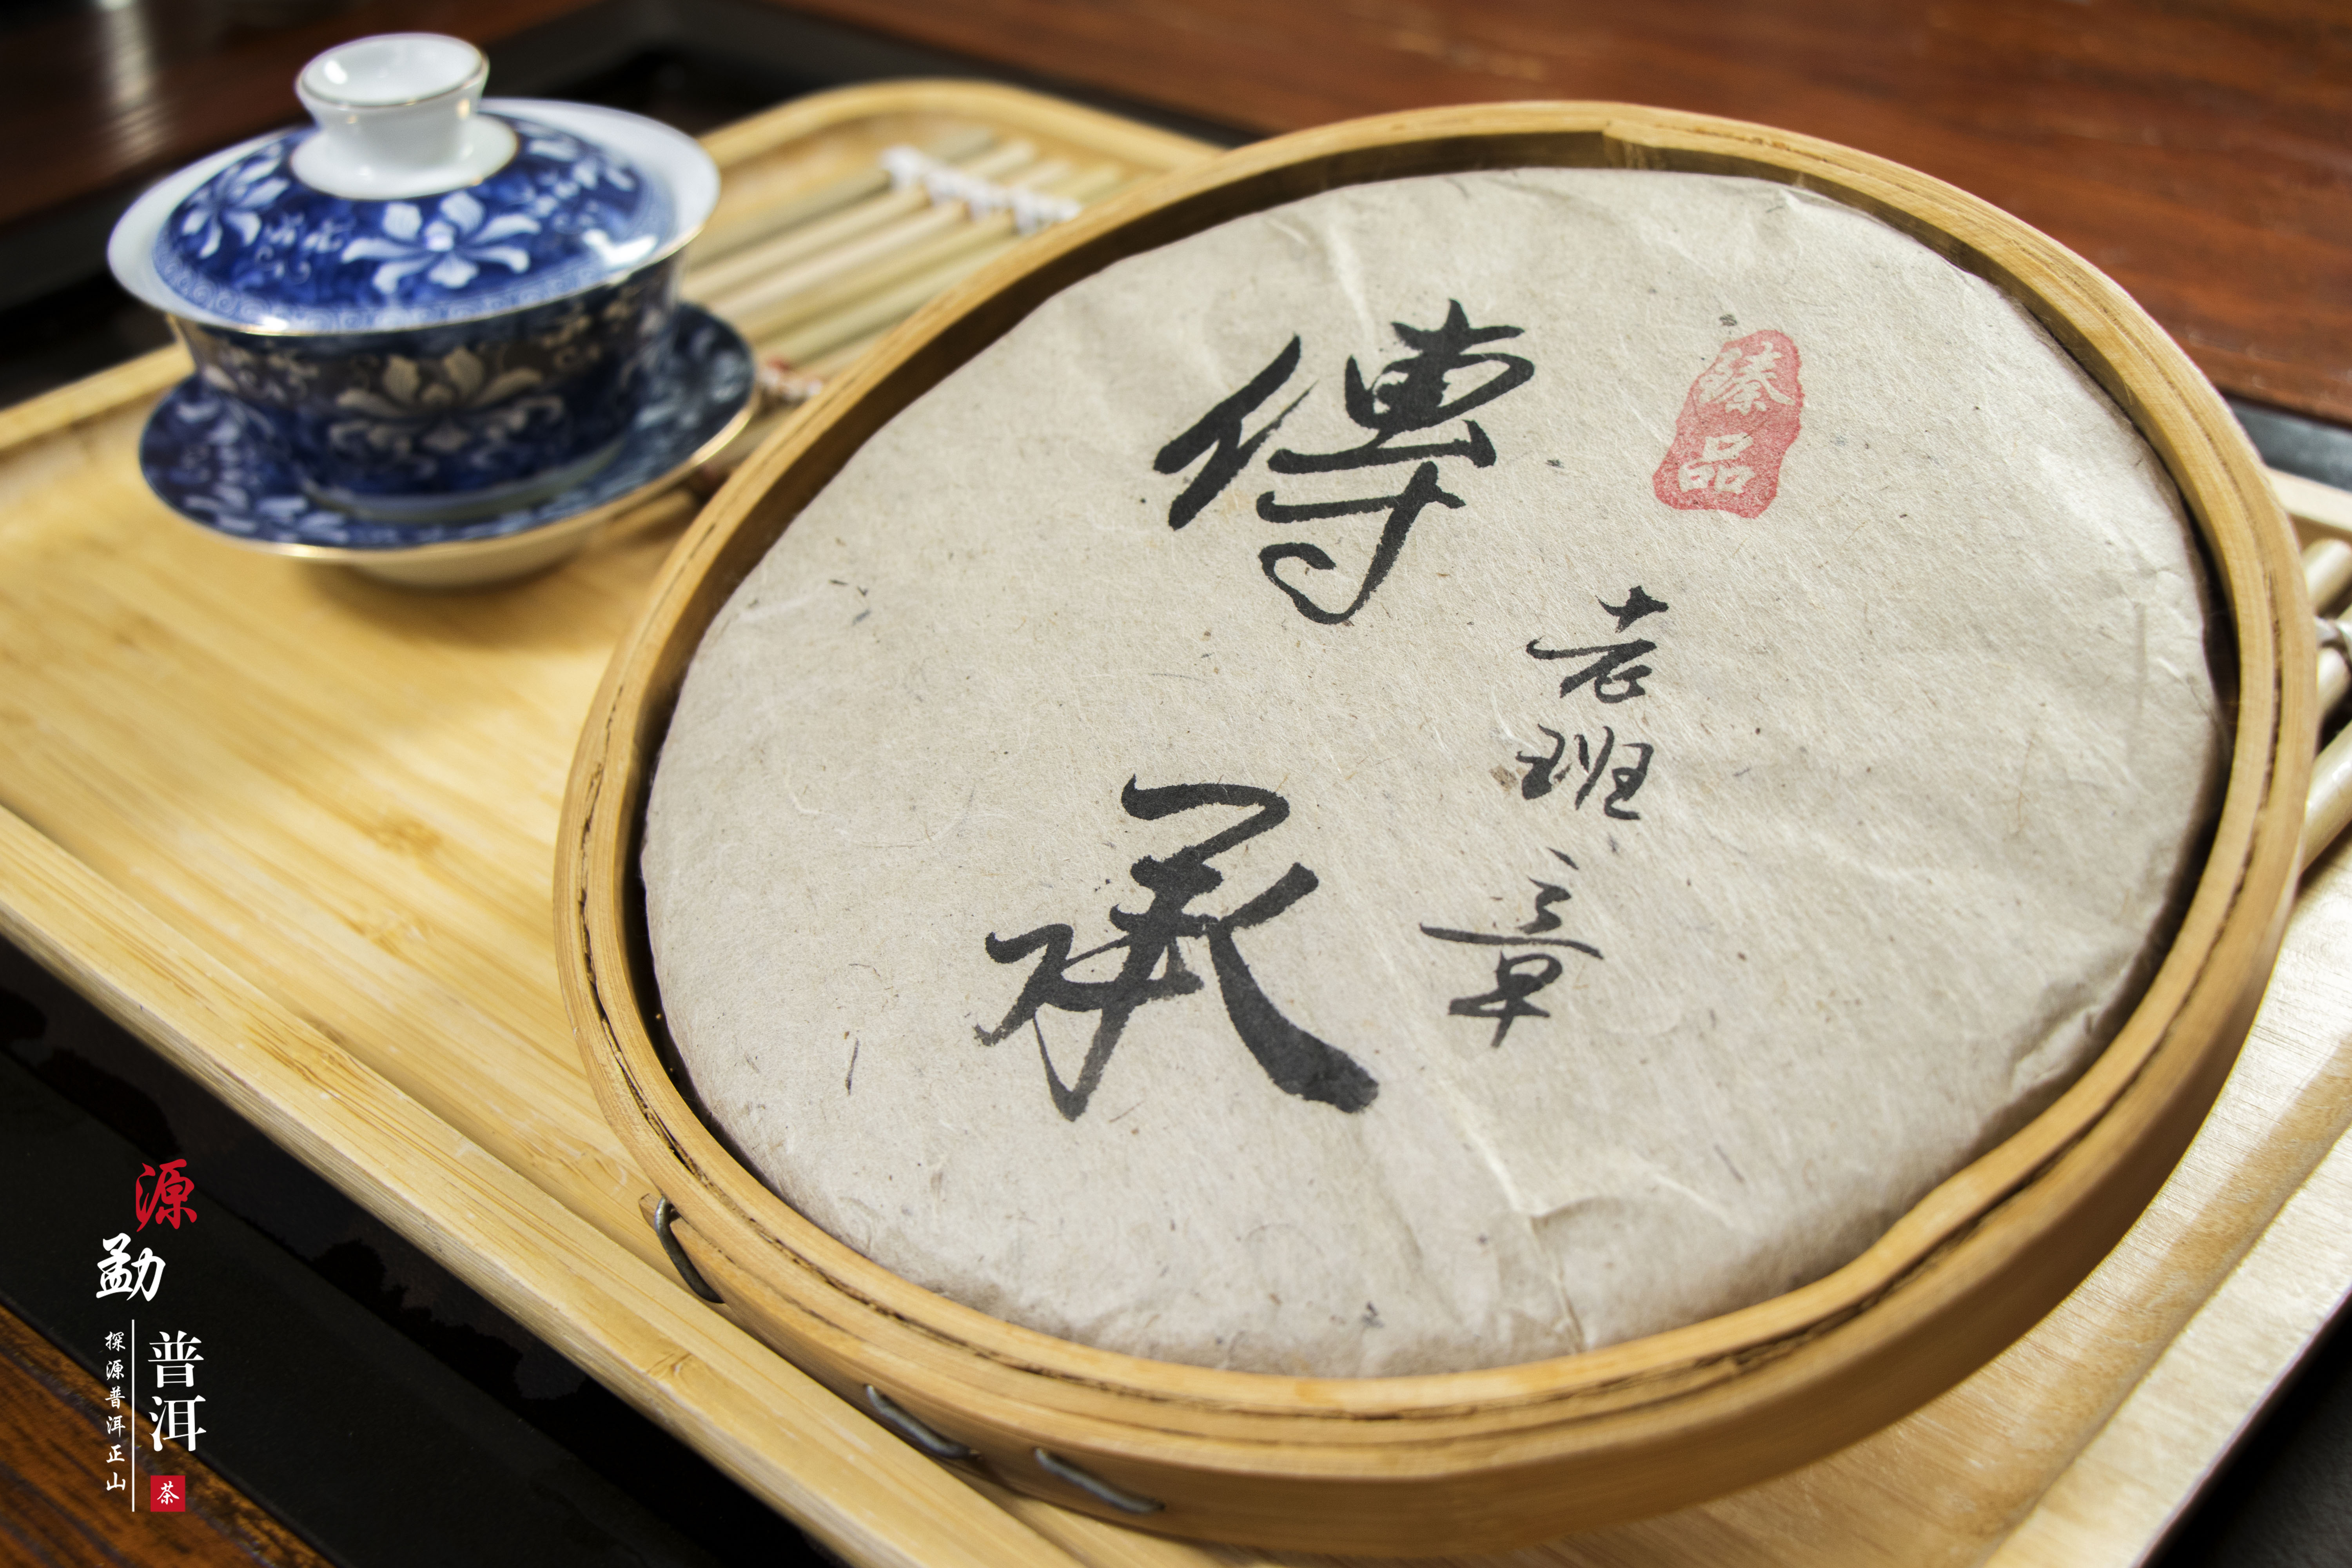 傳承
老班章
臻品
源勐
普洱
茶
探源普洱正山